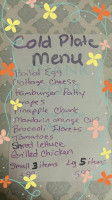 Cold Plate
Menu
Boiled Egg
Cottage Cheese
Hamburger Patty
Grapes
Pineapple Chunk
Mandarin orange
Broccoli florets
Tomatoes
Shred lettuce
Grilled Chicken
Small 3 items Lg 5 items